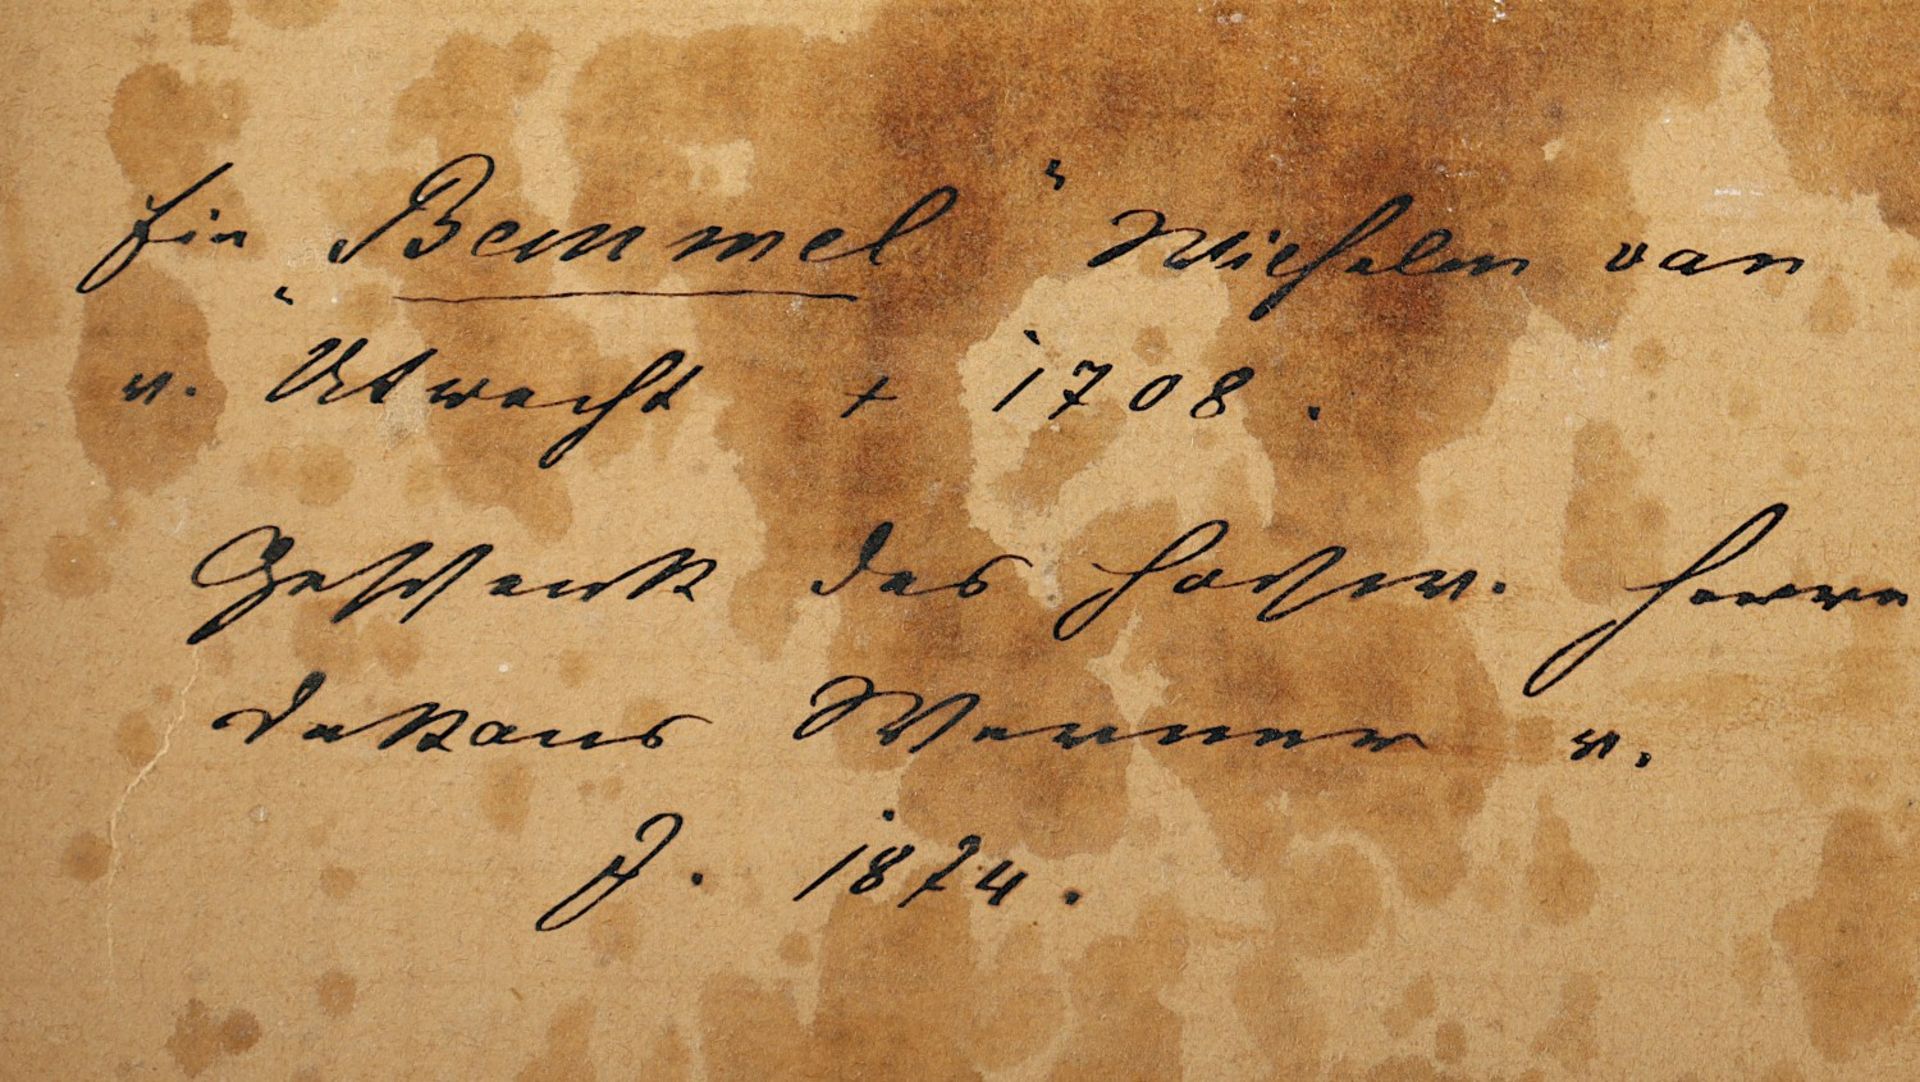 Ein „Bemmel“ Wilhelm van
v. Utrecht + 1708.
Geschenk des Hochw. Herrn
Dekans Werner v.
J. 1874.